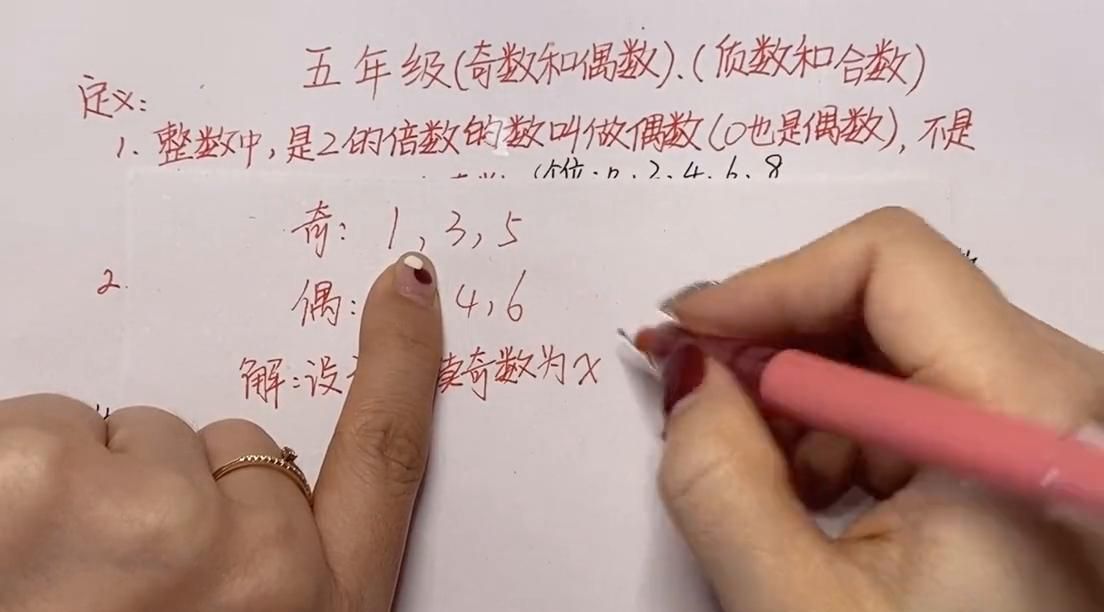 五年级(奇数和偶数)、(质数和合数)
定义:
1. 整数中,是2的倍数的数叫做偶数(0也是偶数),不是
(个位:0、2、4、6、8
奇: 1, 3, 5
2.
偶: 4, 6
解:设 续奇数为x